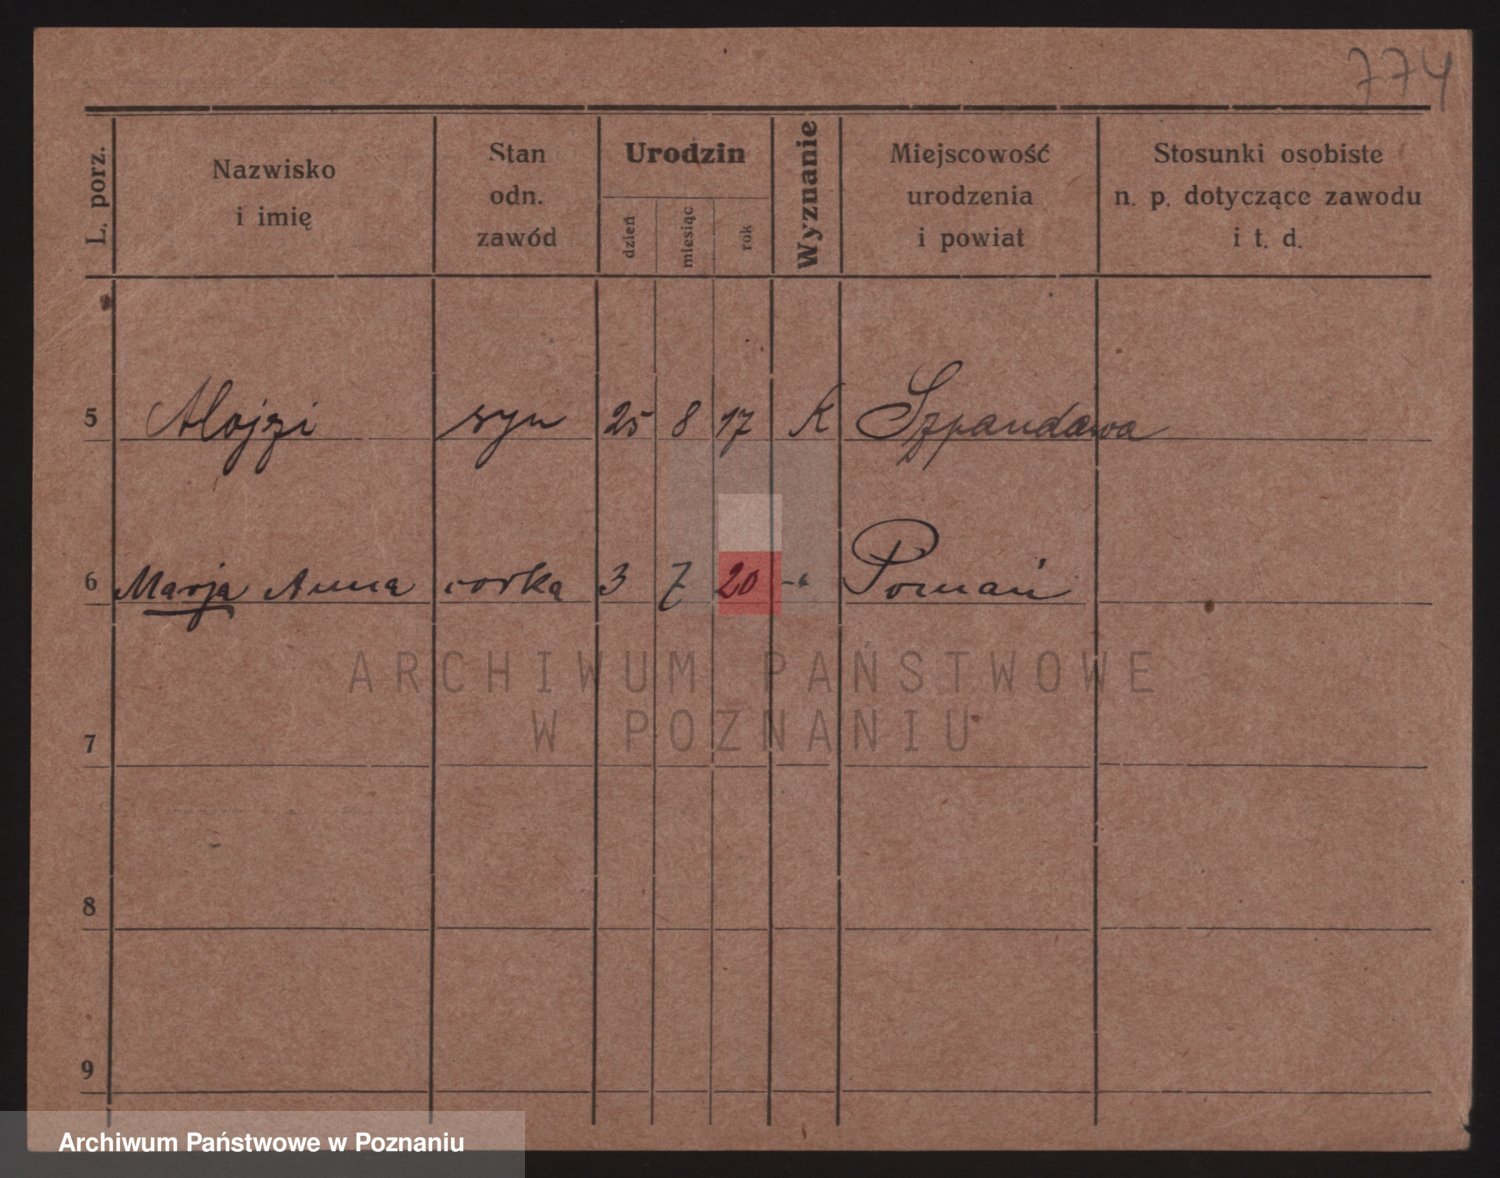 774
L. porz.
Nazwisko
i imię
Stan
odn.
zawód
Urodzin
dzień
miesiąc
rok
Wyznanie
Miejscowość
urodzenia
i powiat
Stosunki osobiste
n. p. dotyczące zawodu
i t. d.
5 Alojzi syn 25 8 17 K Szpandawa
6 Marja Anna corka 3 7 20 -"- Poznań
ARCHIWUM PAŃSTWOWE
W POZNANIU
7
8
9
Archiwum Państwowe w Poznaniu